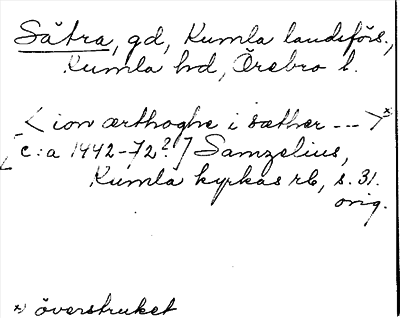 Sätra, gd, Kumla landsförs.,
Kumla hd, Örebro l.
< ion ærthoghe i sæther --- >*)
[c:a 1442-72?] Samzelius,
Kumla kyrkas rb, s. 31.
orig.
*) överstruket